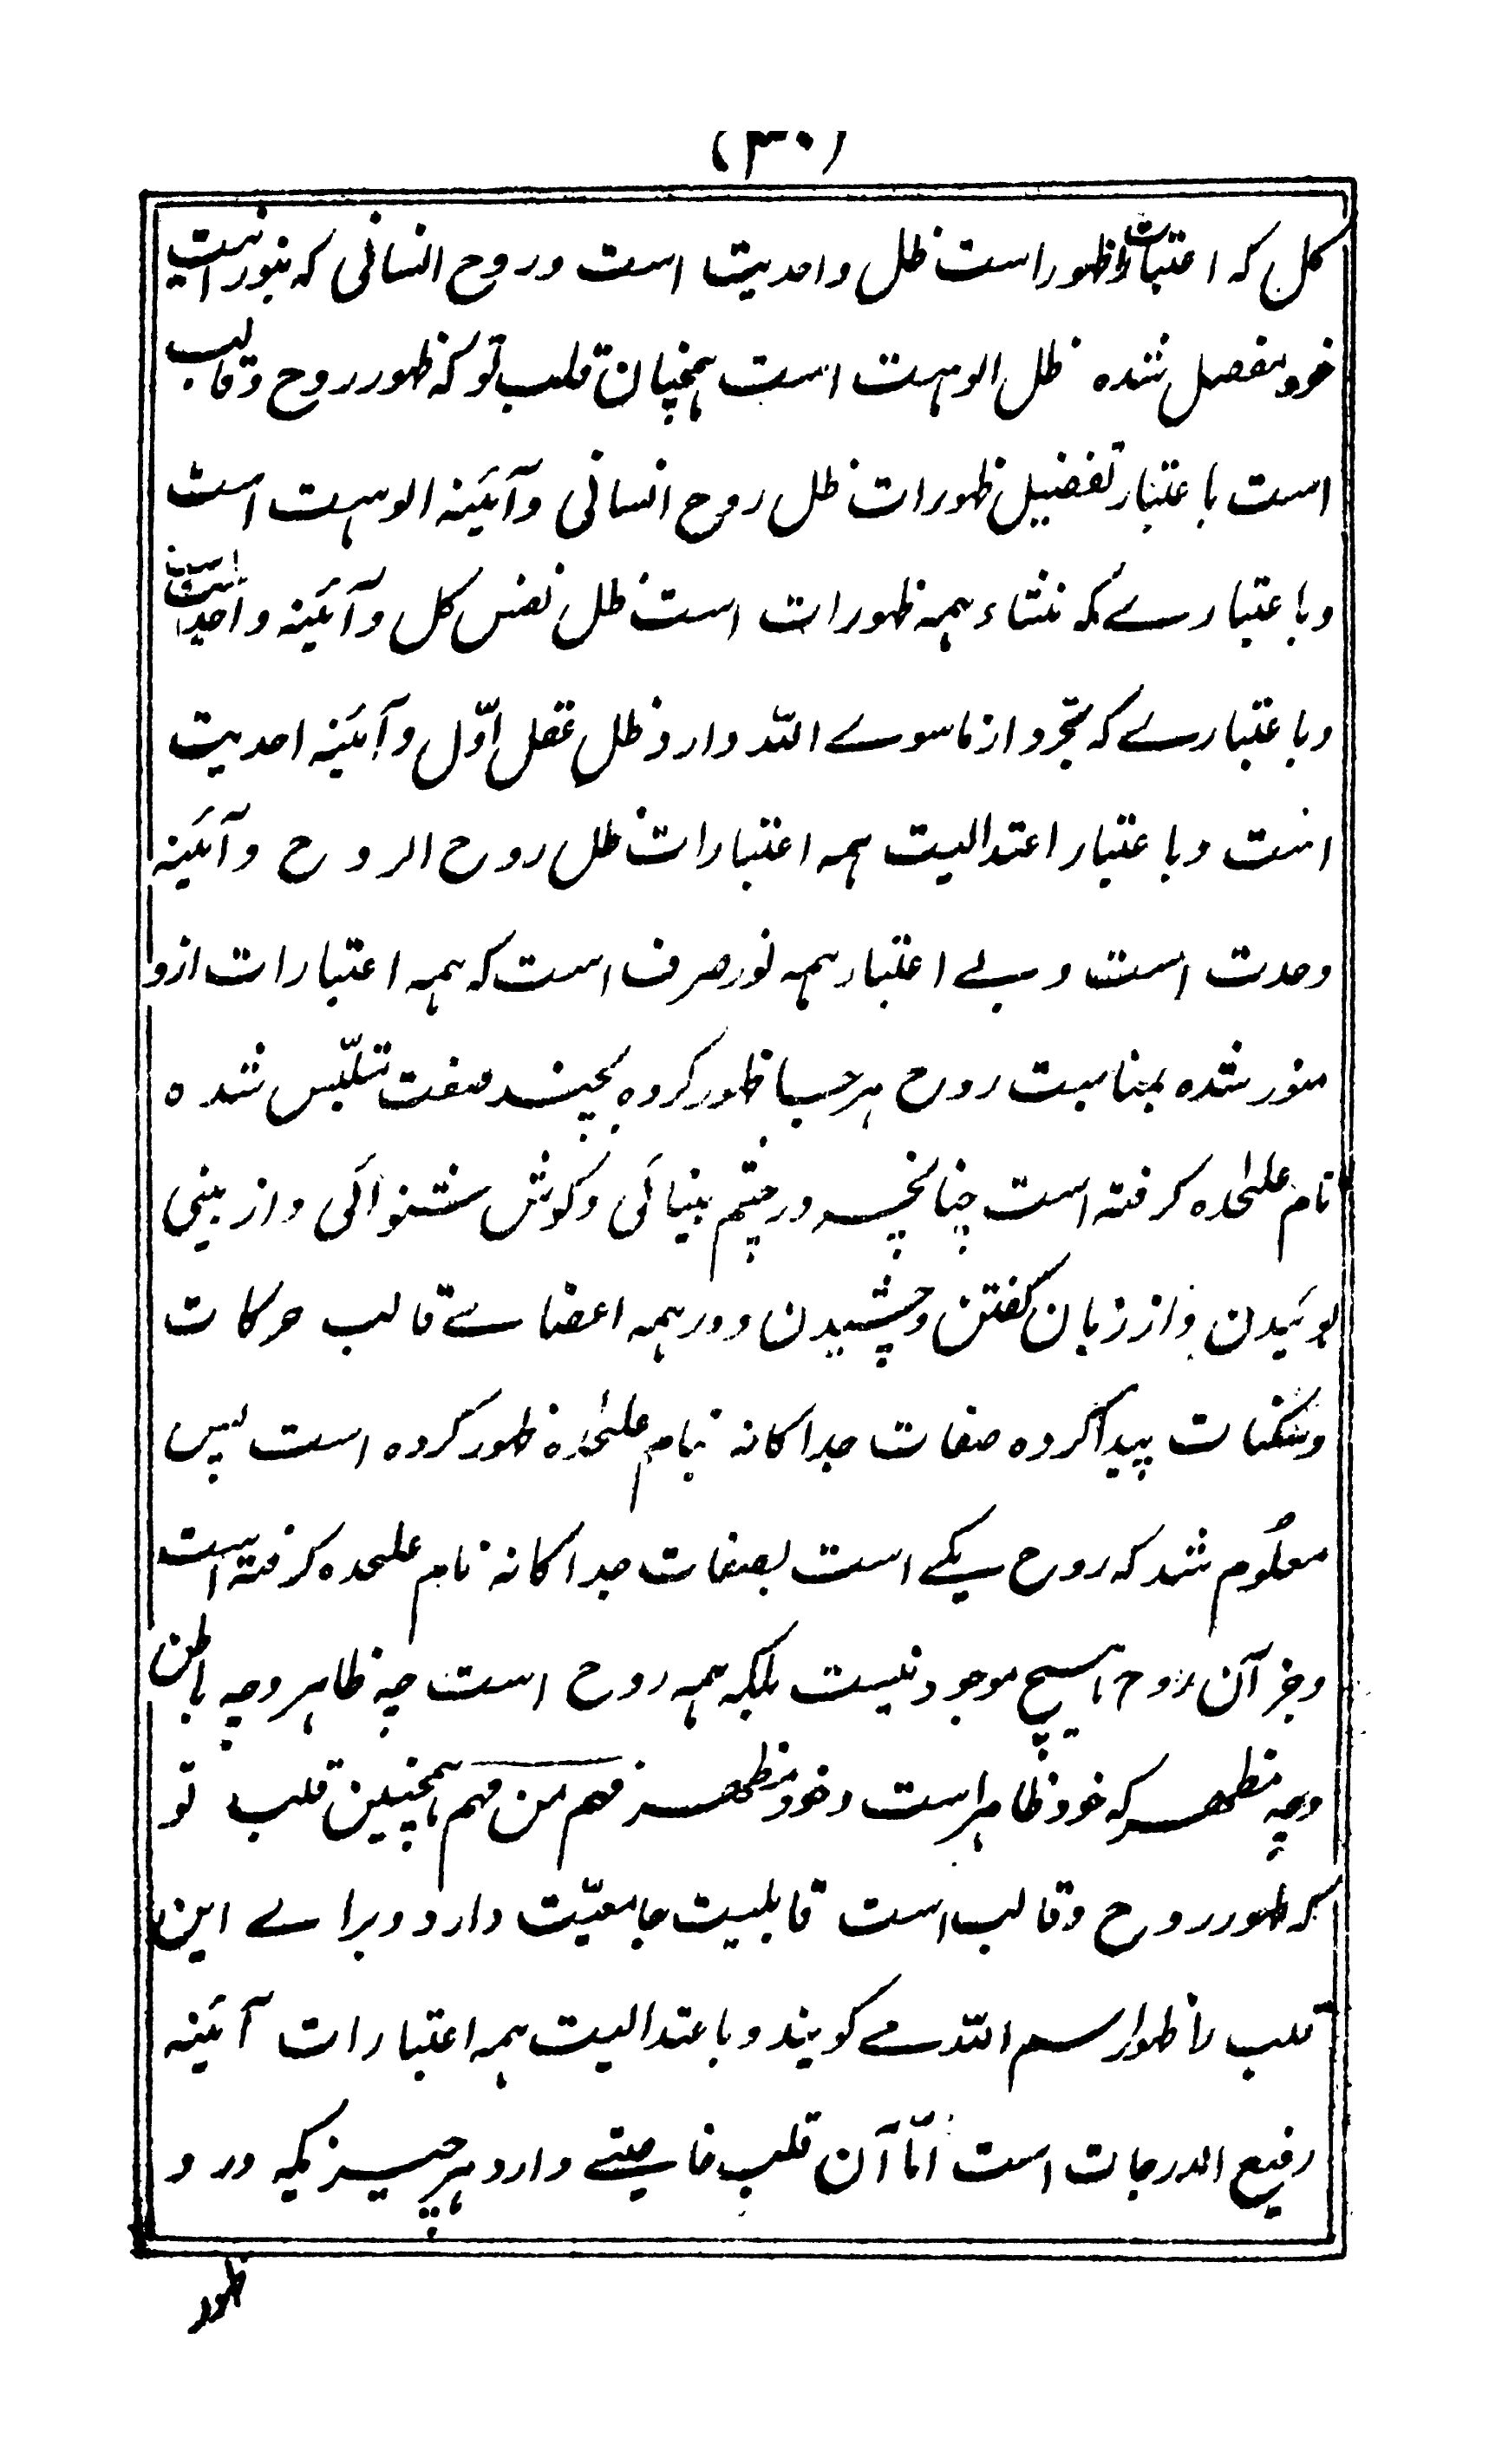 (۳۰)
کل که اعتبارات ظهور است ظل واحدیت است و روح انسانی که بنورانیت
خود مفصل شده ظل الوہیت است ہمچنان قلب تو که ظهور روح و قالب
است باعتبار تفضیل ظهورات ظل روح انسانی و آئینہ الوہیت است
و باعتبارے که منشاء ہمه ظهورات است ظل نفس کل و آئینہ واحدیت است
و باعتبارے که تجرد از ماسوے اللہ دارد ظل عقل اوّل و آئینہ احدیت
است و باعتبار اعتدالیت ہمہ اعتبارات ظل روح الروح و آئینہ
وحدت است و بے اعتبار ہمہ نور صرف است که ہمہ اعتبارات ازو
منور شده بمناسبت روح ہر جسا ظهور کرده بچند صفت متلبّس شده
نام علیٰحده گرفته است چنانچہ در چشم بینائی و گوش شنوائی و از بینی
بوئیدن و از زبان گفتن و چشیدن و در ہمہ اعضاے قالب حرکات
و سکنات پیدا کرده صفات جداگانه بنام علیٰحده ظهور کرده است پس
معلُوم شد که روح یکے است بصفات جداگانہ نام علیحده گرفته است
و جز آن روح ہیچ موجود نیست بلکہ ہمہ روح است چہ ظاہر و چہ باطن
و چہ مظہر که خود ظاہر است و خود مظہر فہم من فہم ہمچنین قلب تو
که ظهور روح و قالب است قابلیت جامعیّت دارد و براے این
قلب را ظهور اسم اللہ مے گویند و باعتدالیت ہمہ اعتبارات آئینہ
رفیع الدرجات است امّا آن قلب خاصیتے دارد ہر چیزیکہ درو
ظهور